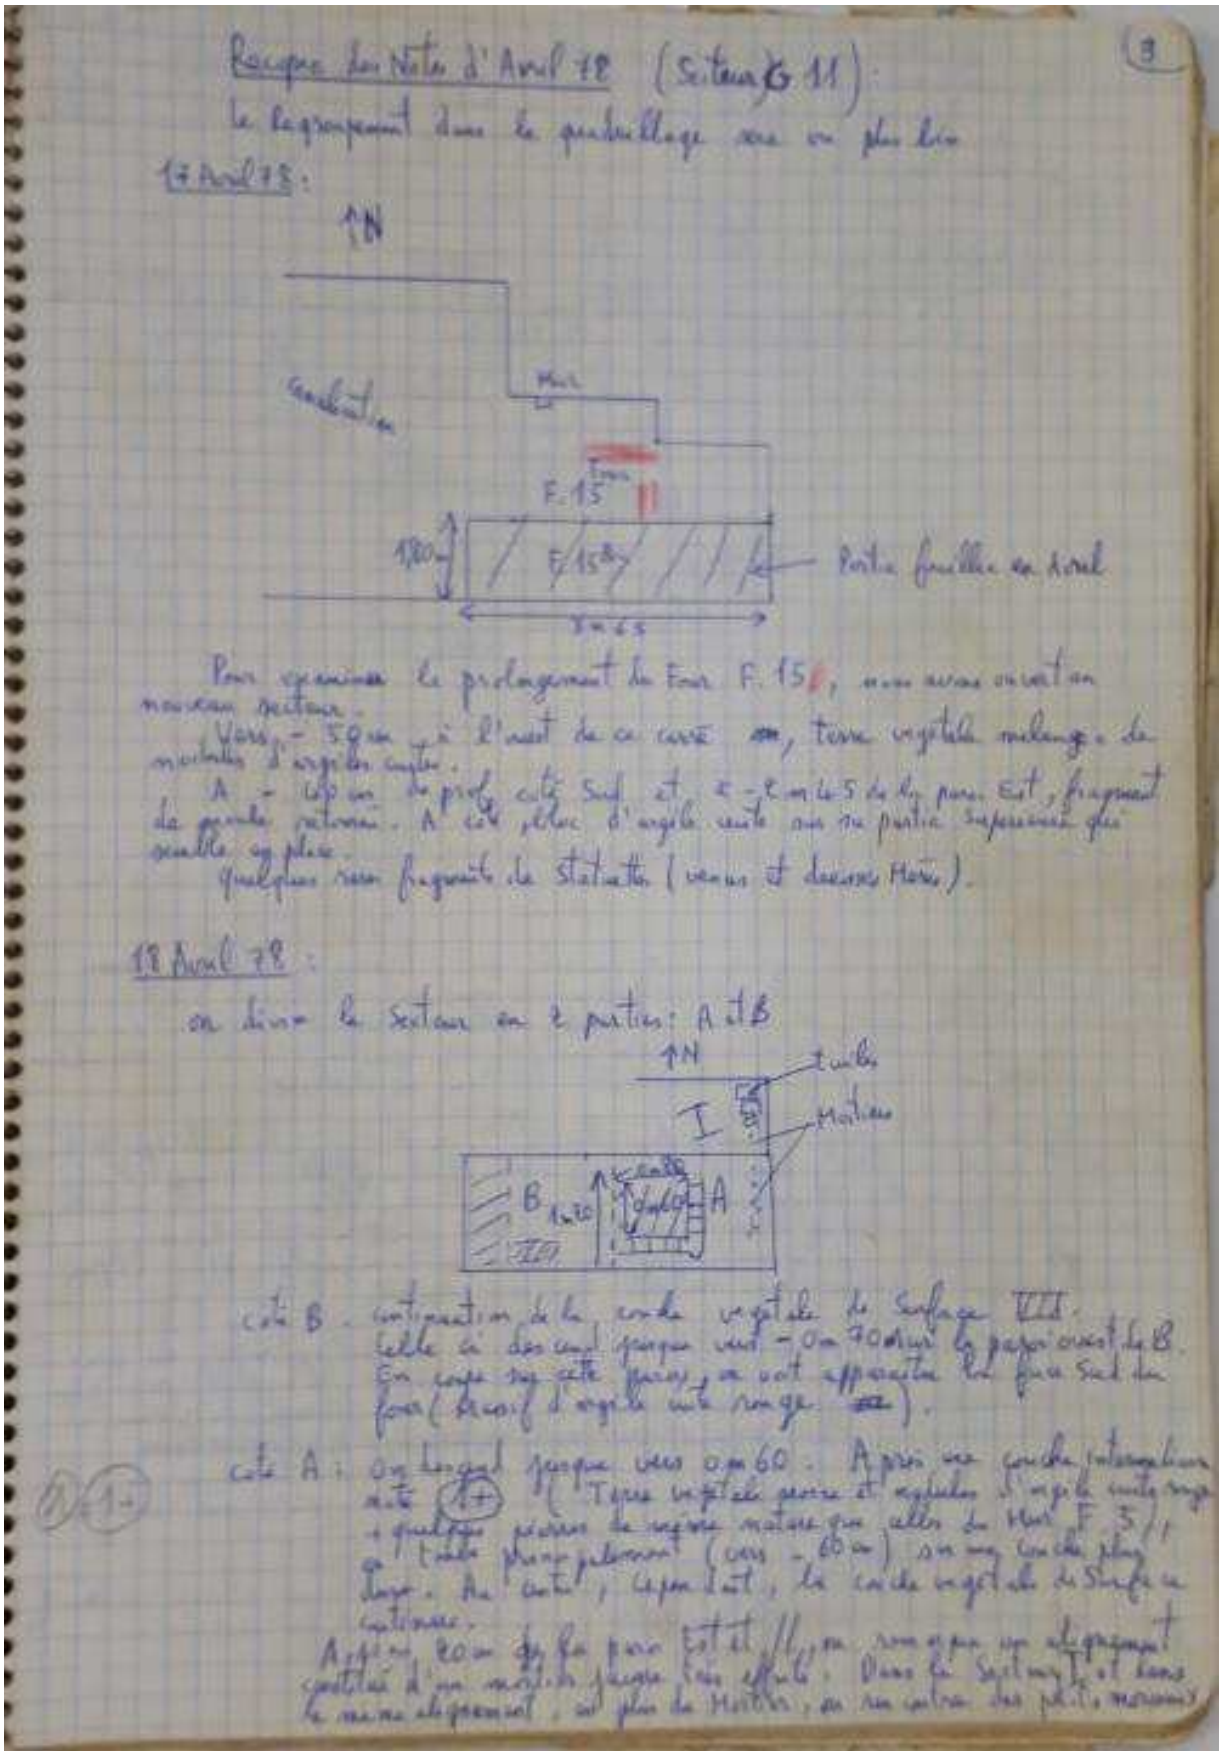 3
Recopie des Notes d'Avril 78 (Secteur G 11) :
Le Regroupement dans le quadrillage sera vu plus loin
17 Avril 78 :
↑N
canalisation
Mur
Four
F. 15
1,80m
F. 15
Partie fouillée en Avril
Pour examiner le prolongement du Four F. 15, nous avons ouvert un
nouveau secteur.
Vers - 50 cm à l'ouest de ce carré, terre végétale mélangée de
nodules d'argiles cuites.
A - 60 cm de prof, coté Sud et à - 2 m 45 de la paroi Est, fragment
de meule retourné. A coté, bloc d'argile cuite sur sa partie supérieure qui
semble en place.
quelques rares fragments de Statuettes (venus et déesses Mères).
18 Avril 78 :
on divise le Secteur en 2 parties : A et B
↑N
tuiles
I
Mortiers
B
1m80
0m60
A
coté B. continuation de la couche végétale de Surface VIII.
Celle ci descend jusque vers - 0m 70 sur la paroi ouest de B.
En coupe sur cette paroi, on voit apparaître la face Sud du
four (massif d'argile cuite rouge).
coté A : on descend jusque vers 0m60. Après une couche intermédiaire
1+
noté 1+ (Terre végétale et nodules d'argile cuite rouge
+ quelques pierres de même nature que celles du Mur F. 5),
on tombe principalement (vers - 60 cm) sur une couche plus
dure. Au centre, cependant, la couche végétale de Surface
continue.
A 20 cm de la paroi Est et //, on remarque un alignement
constitué d'un mortier jaune très effrité. Dans le Secteur I, et dans
le même alignement, en plus du Mortier, on rencontre des petits morceaux